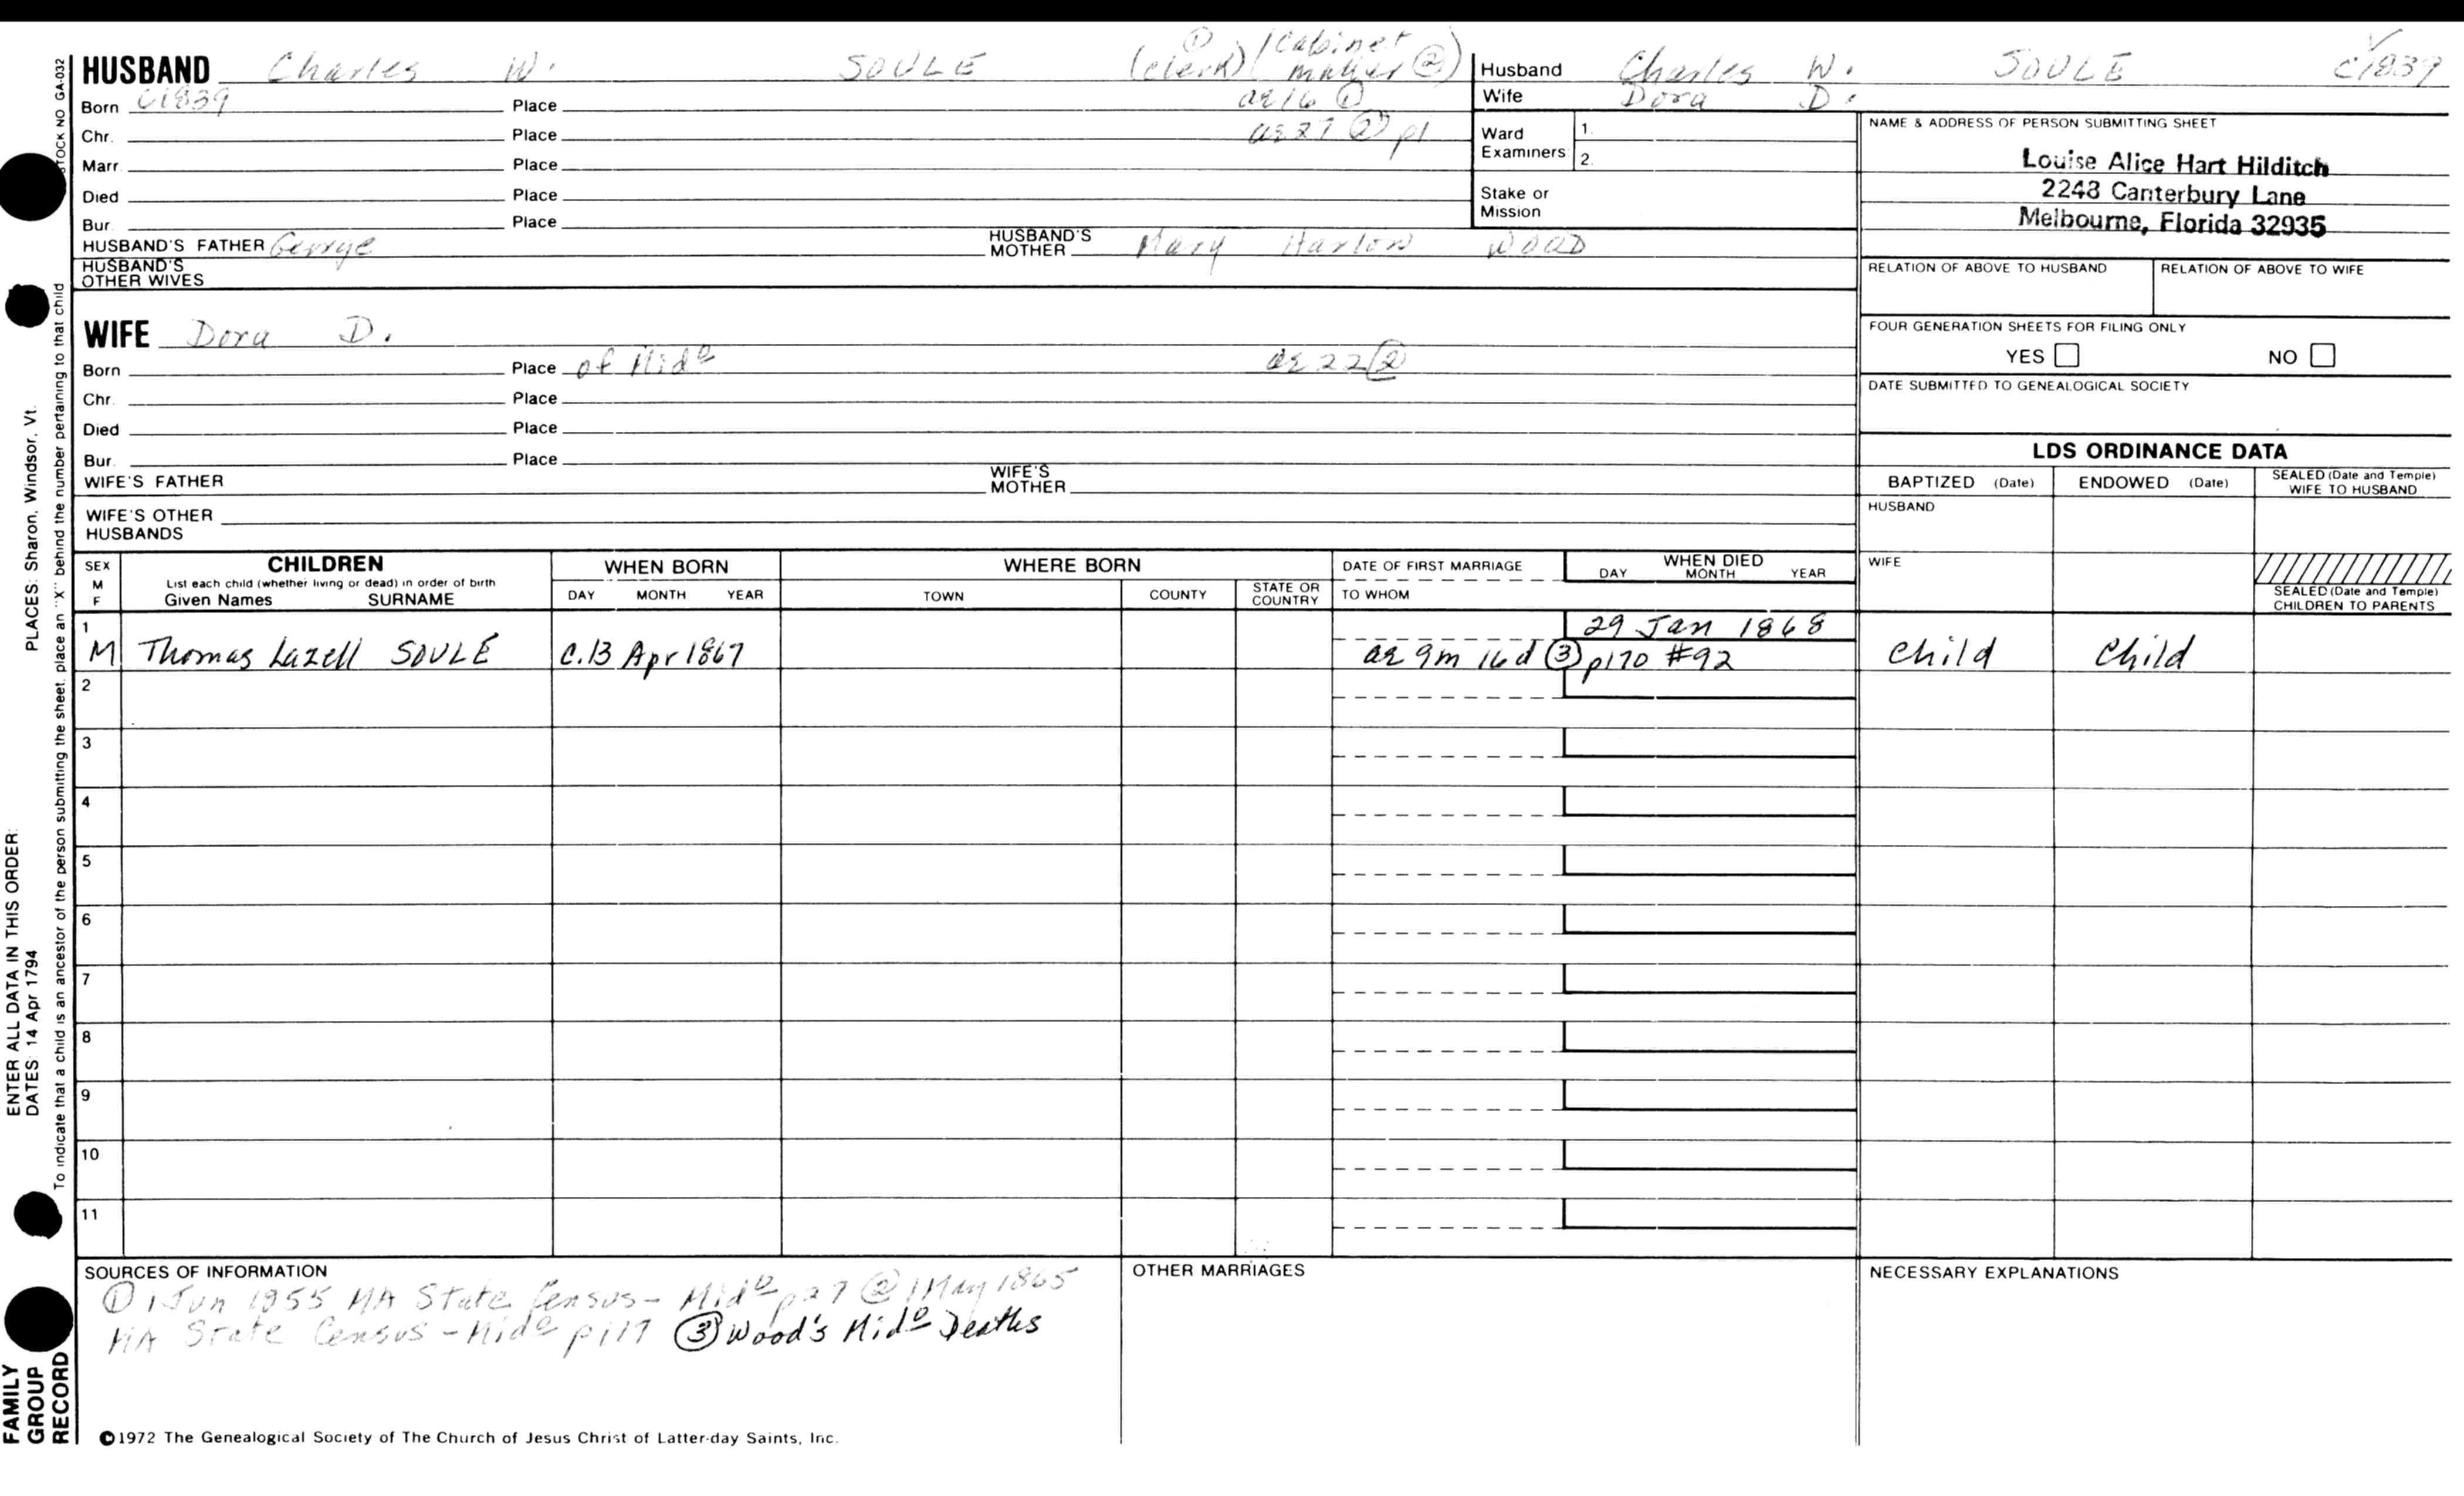 HUSBAND Charles W. SOULE (clerk) ① / Cabinet maker ②
Born c1839 Place ae 16 ①
Chr. Place ae 27 ② p1
Marr. Place
Died Place
Bur. Place
HUSBAND'S FATHER George HUSBAND'S MOTHER Mary Harlow WOOD
HUSBAND'S OTHER WIVES
Husband Charles W. SOULE c1839
Wife Dora D.
Ward Examiners 1. 2.
Stake or Mission
NAME & ADDRESS OF PERSON SUBMITTING SHEET
Louise Alice Hart Hilditch
2243 Canterbury Lane
Melbourne, Florida 32935
RELATION OF ABOVE TO HUSBAND RELATION OF ABOVE TO WIFE
FOUR GENERATION SHEETS FOR FILING ONLY
YES NO
DATE SUBMITTED TO GENEALOGICAL SOCIETY
WIFE Dora D.
Born Place of Midº ae 22 ②
Chr. Place
Died Place
Bur. Place
WIFE'S FATHER WIFE'S MOTHER
WIFE'S OTHER HUSBANDS
LDS ORDINANCE DATA
BAPTIZED (Date) ENDOWED (Date) SEALED (Date and Temple) WIFE TO HUSBAND
HUSBAND
WIFE
SEALED (Date and Temple) CHILDREN TO PARENTS
SEX M F
CHILDREN
List each child (whether living or dead) in order of birth
Given Names SURNAME
WHEN BORN
DAY MONTH YEAR
WHERE BORN
TOWN COUNTY STATE OR COUNTRY
DATE OF FIRST MARRIAGE
TO WHOM
WHEN DIED
DAY MONTH YEAR
1 29 Jan 1868
M Thomas Lazell SOULE c.13 Apr 1867 ae 9m 16d ③ p170 #92 child child
2
3
4
5
6
7
8
9
10
11
SOURCES OF INFORMATION
① 1 Jun 1955 MA State Census - Midº p27 ② 1 May 1865
MA State Census - Midº p117 ③ Wood's Midº Deaths
OTHER MARRIAGES
NECESSARY EXPLANATIONS
©1972 The Genealogical Society of The Church of Jesus Christ of Latter-day Saints, Inc.
FAMILY
GROUP
RECORD
ENTER ALL DATA IN THIS ORDER:
DATES: 14 Apr 1794 PLACES: Sharon, Windsor, Vt.
To indicate that a child is an ancestor of the person submitting the sheet, place an "X" behind the number pertaining to that child
STOCK NO GA-032